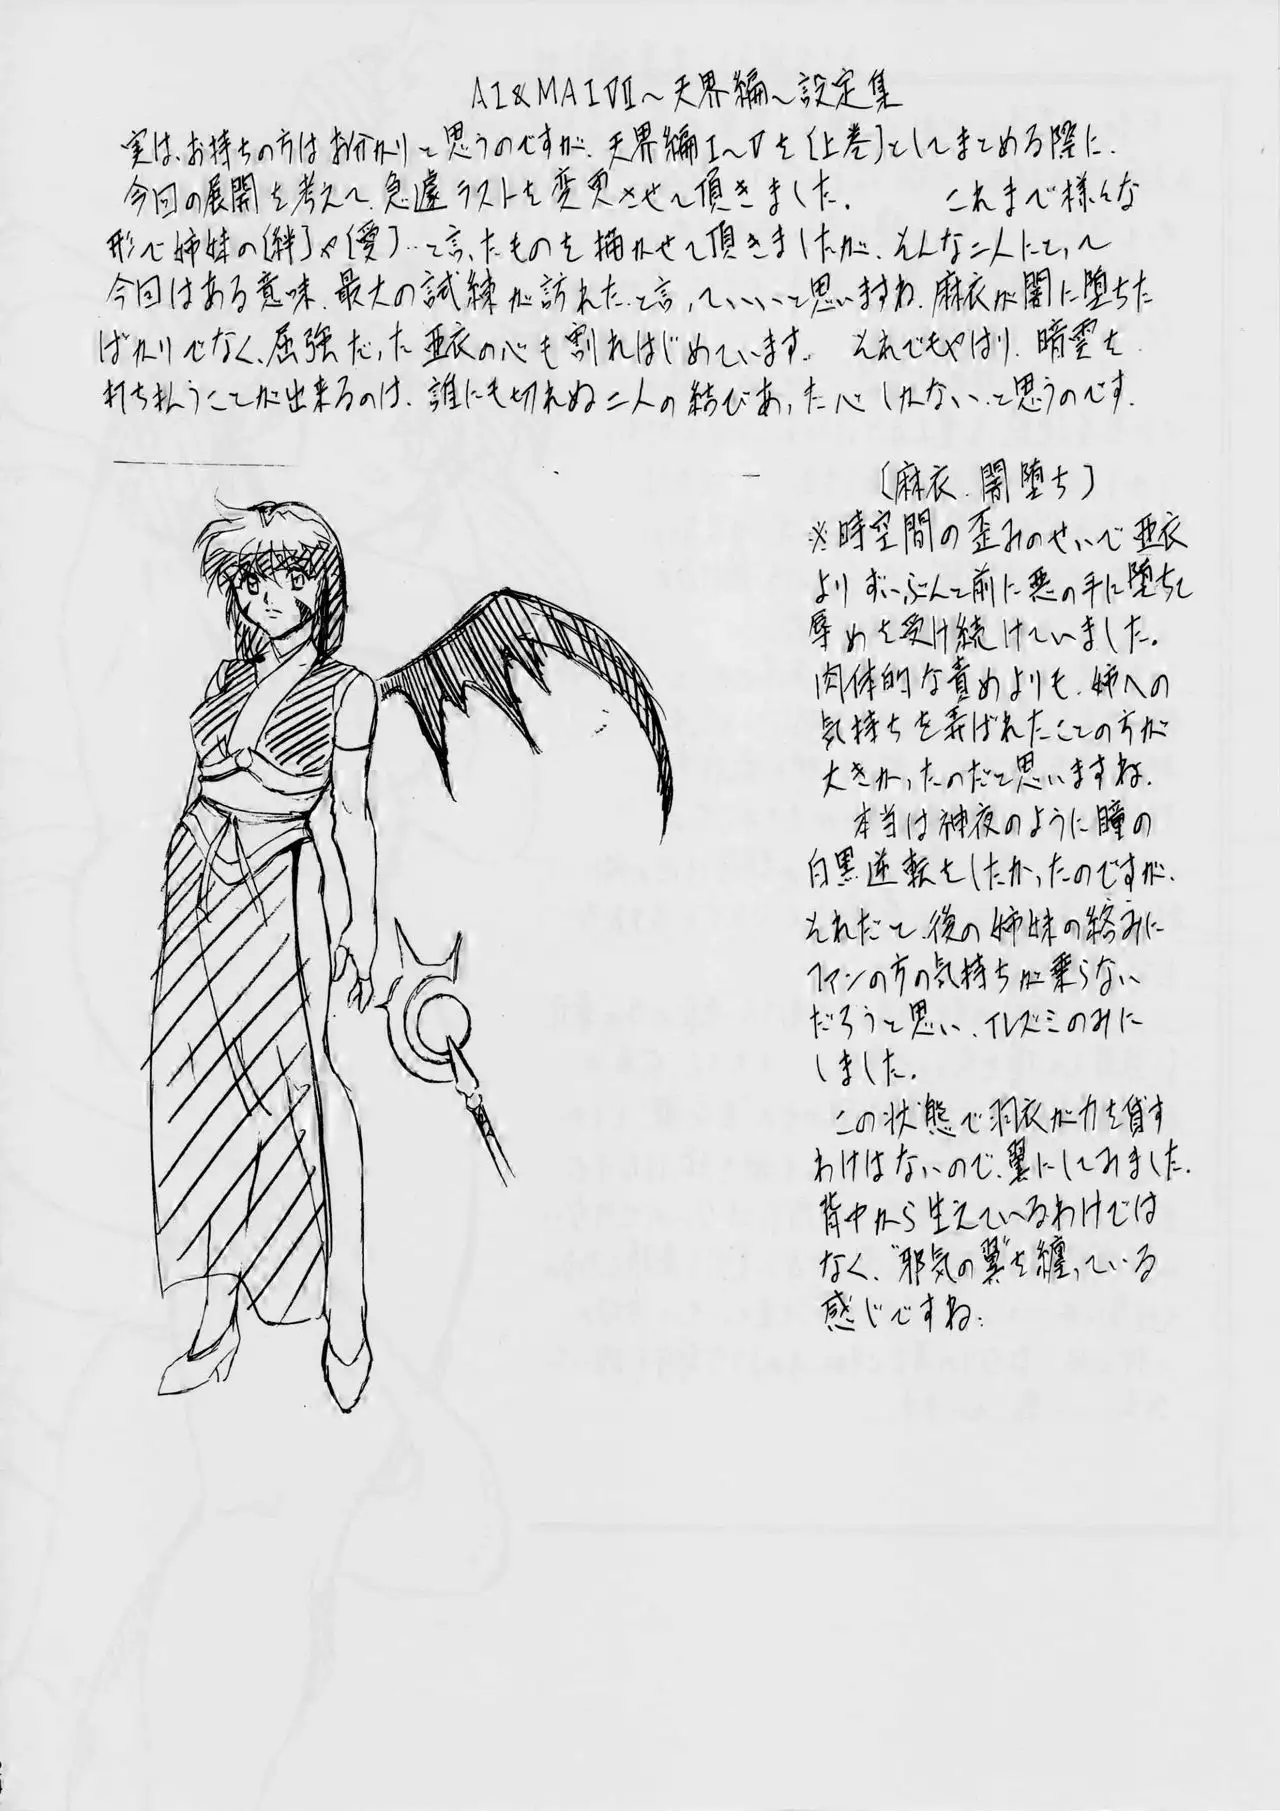 AI&MAI VII～天界編～設定集
実は、お持ちの方はお分かりと思うのですが、天界編I～Vを〔上巻〕としてまとめる際に、
今回の展開を考えて、急遽ラストを変更させて頂きました。 これまで様々な
形で姉妹の〔絆〕や〔愛〕…と言ったものを描かせて頂きましたが、そんな二人にとって
今回はある意味、最大の試練が訪れた、と言っていいと思いますね。麻衣が闇に堕ちた
ばかりでなく、屈強だった亜衣の心も割れはじめています。 それでもやはり、暗雲を
打ち払うことが出来るのは、誰にも切れぬ二人の結びあった心しかない、と思うのです。
〔麻衣、闇堕ち〕
※時空間の歪みのせいで亜衣
よりずいぶんと前に悪の手に堕ちて
辱めを受け続けていました。
肉体的な責めよりも、姉への
気持ちを弄ばれたことの方が
大きかったのだと思いますね。
本当は神夜のように瞳の
白黒逆転をしたかったのですが、
それだと、後の姉妹の絡みに
ファンの方の気持ちが乗らない
だろうと思い、イレズミのみに
しました。
この状態で羽衣が力を貸す
わけはないので、翼にしてみました。
背中から生えているわけでは
なく、"邪気の翼"を纏っている
感じですね。